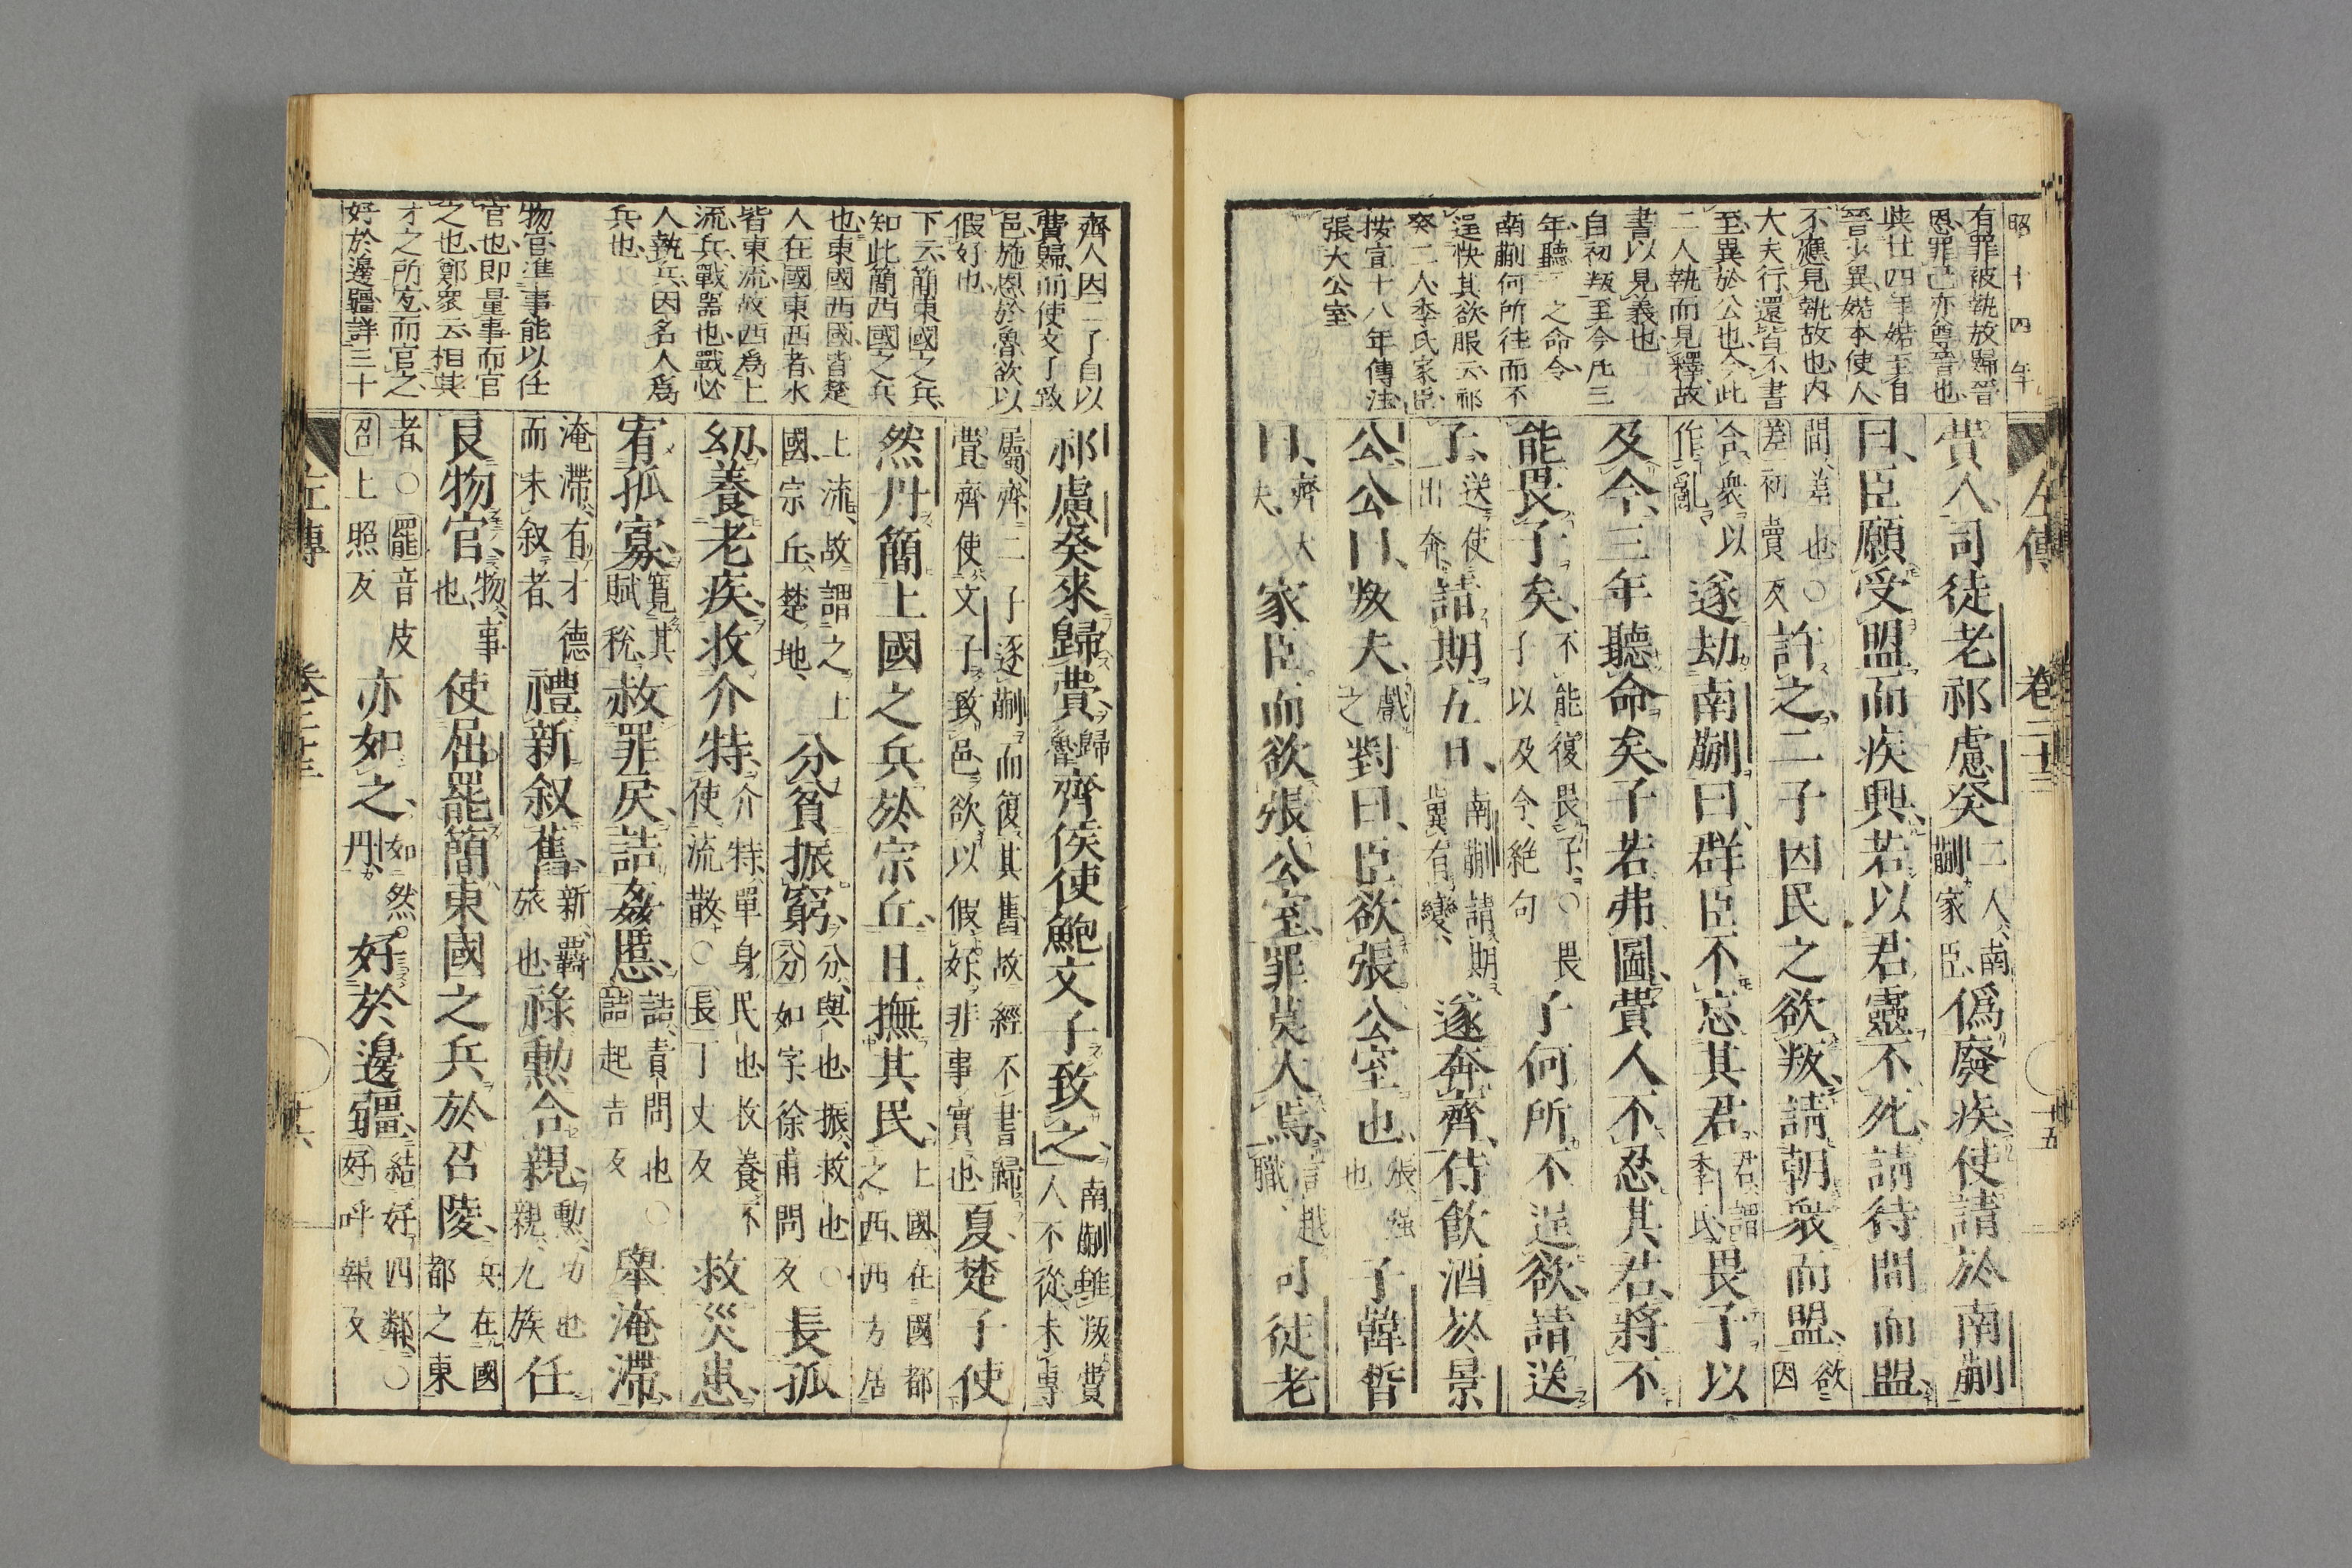 昭十四年
有罪被執故歸晉
恩罪己亦尊晉也
昳仕四年婼至自
晉少異婼本使人
不應見執故也内
大夫行還皆不書
至異於公也今此
二人執而見釋故
書以見義也
自初叛至今凡三
年聽二之命令
南蒯何所往而不
逞快其欲服云祁
癸二人季氏家臣
按宣十八年傳注
張大公室
左傳 卷二十三 十五
費人司徒老祁慮癸二人南蒯家臣僞廢疾使請於南蒯
曰臣願受盟而疾興若以君靈不死請待間而盟
間差也○差初賣反許之二子因民之欲叛請朝衆而盟欲因
合衆以作亂遂劫南蒯曰群臣不忘其君君謂季氏畏子以
及今三年聽命矣子若弗圖費人不忍其君將不
能畏子矣不能復畏子○畏子以及今絶句子何所不逞欲請送
子送使出奔請期五日南蒯請期冀有變遂奔齊侍飲酒於景
公公曰叛夫戲之對曰臣欲張公室也張強也子韓晳
曰齊大夫家臣而欲張公室罪莫大焉言越職司徒老
齊人因二子自以
費歸而使文子致
邑施恩於魯欲以
假好也
下云簡東國之兵
知此簡西國之兵
也東國西國皆楚
人在國東西者水
皆東流故西爲上
流兵戰器也戰必
人執兵因名人爲
兵也
物官準事能以任
官也即量事而官
之也鄭衆云相其
才之所宜而官之
好於邊疆詳三十
祁慮癸來歸費歸魯齊侯使鮑文子致之南蒯雖叛費人不從未專
屬齊二子逐蒯而復其舊故經不書歸費齊使文子致邑欲以假好非事實也夏楚子使
然丹簡上國之兵於宗丘且撫其民上國在國都之西西方居
上流故謂之上國宗丘楚地分貧振窮分與也振救也○分如字徐甫問反長孤
幼養老疾收介特介特單身民也收養不使流散○長丁丈反救災患
宥孤寡寬其賦稅赦罪戾詰姦慝詰責問也○詰起吉反舉淹滯
淹滯有才德而未叙者禮新叙舊新羈旅也祿勳合親勳功也親九族任
良物官物事也使屈罷簡東國之兵於召陵兵在國都之東
者○罷音皮召上照反亦如之如然丹好於邊疆結好四鄰○好呼報反
左傳 卷二十三 十六